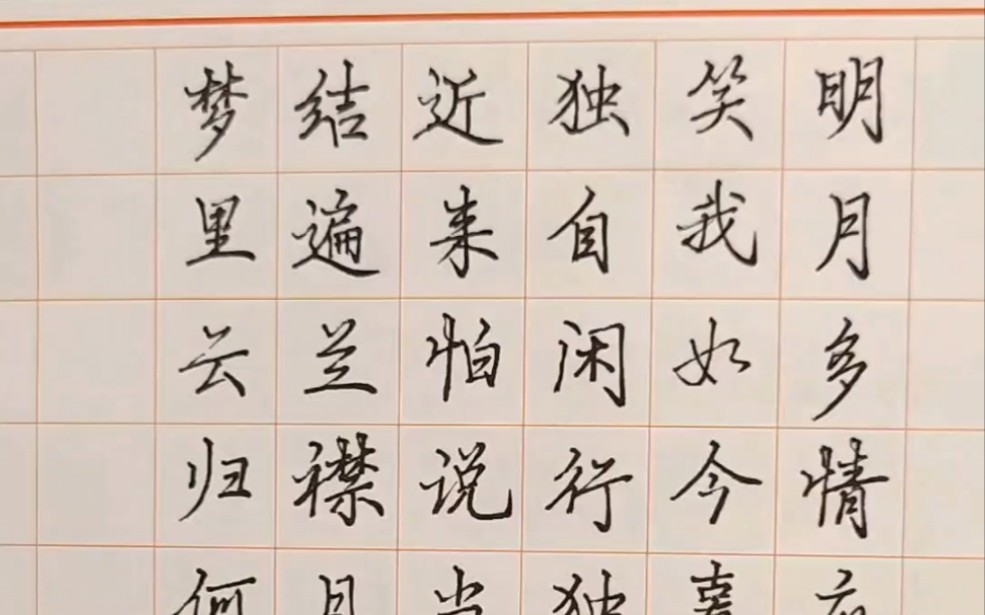 明月多情应
笑我如今辜
独自闲行独
近来怕说当
结遍兰襟月
梦里云归何